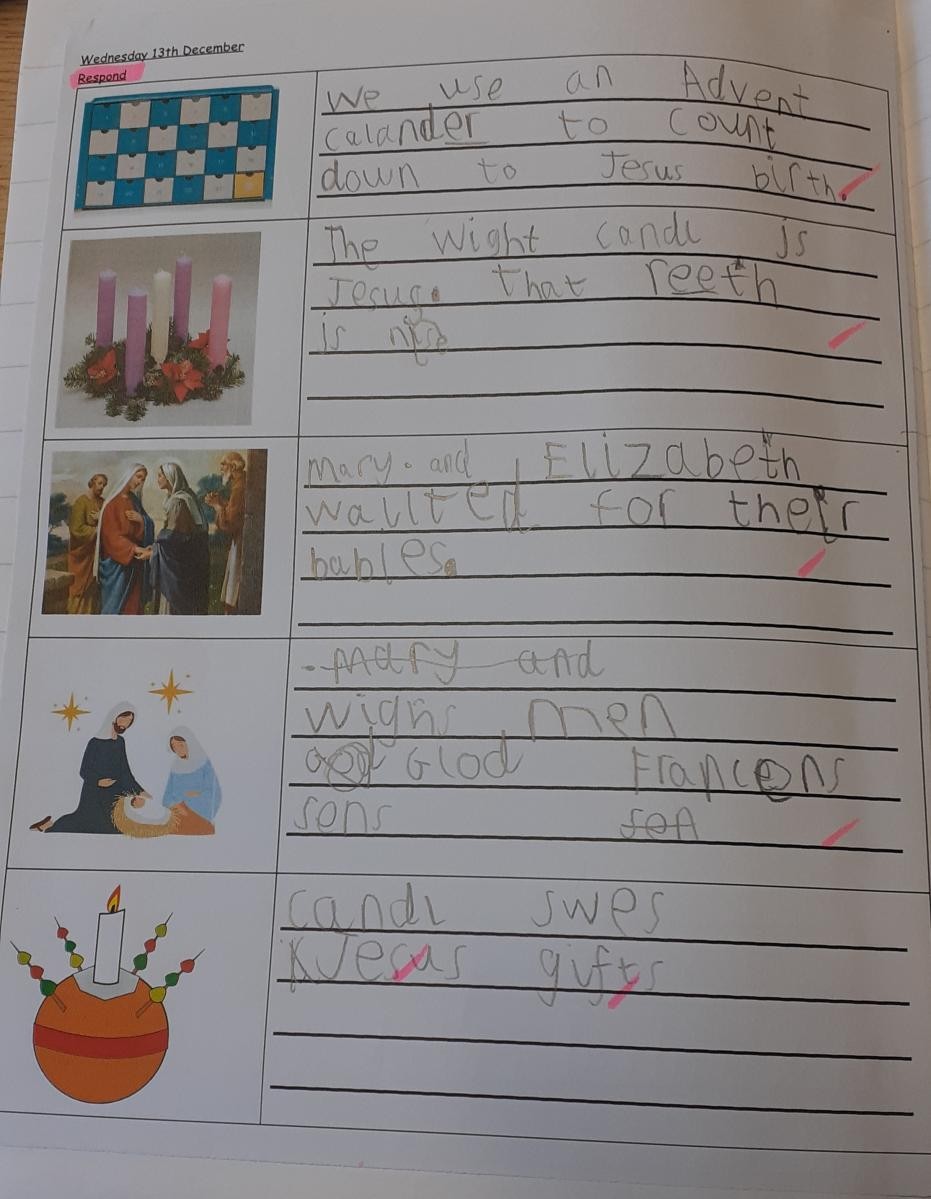 Wednesday 13th December
Respond
We use an Advent
calander to count
down to Jesus birth.
The wight candl is
Jesus. that reeth
is
mary. and Elizabeth
waiited for their
babies.
mary and
wighs men
Glod Francens
sens sen
candl swes
Jesus gifts